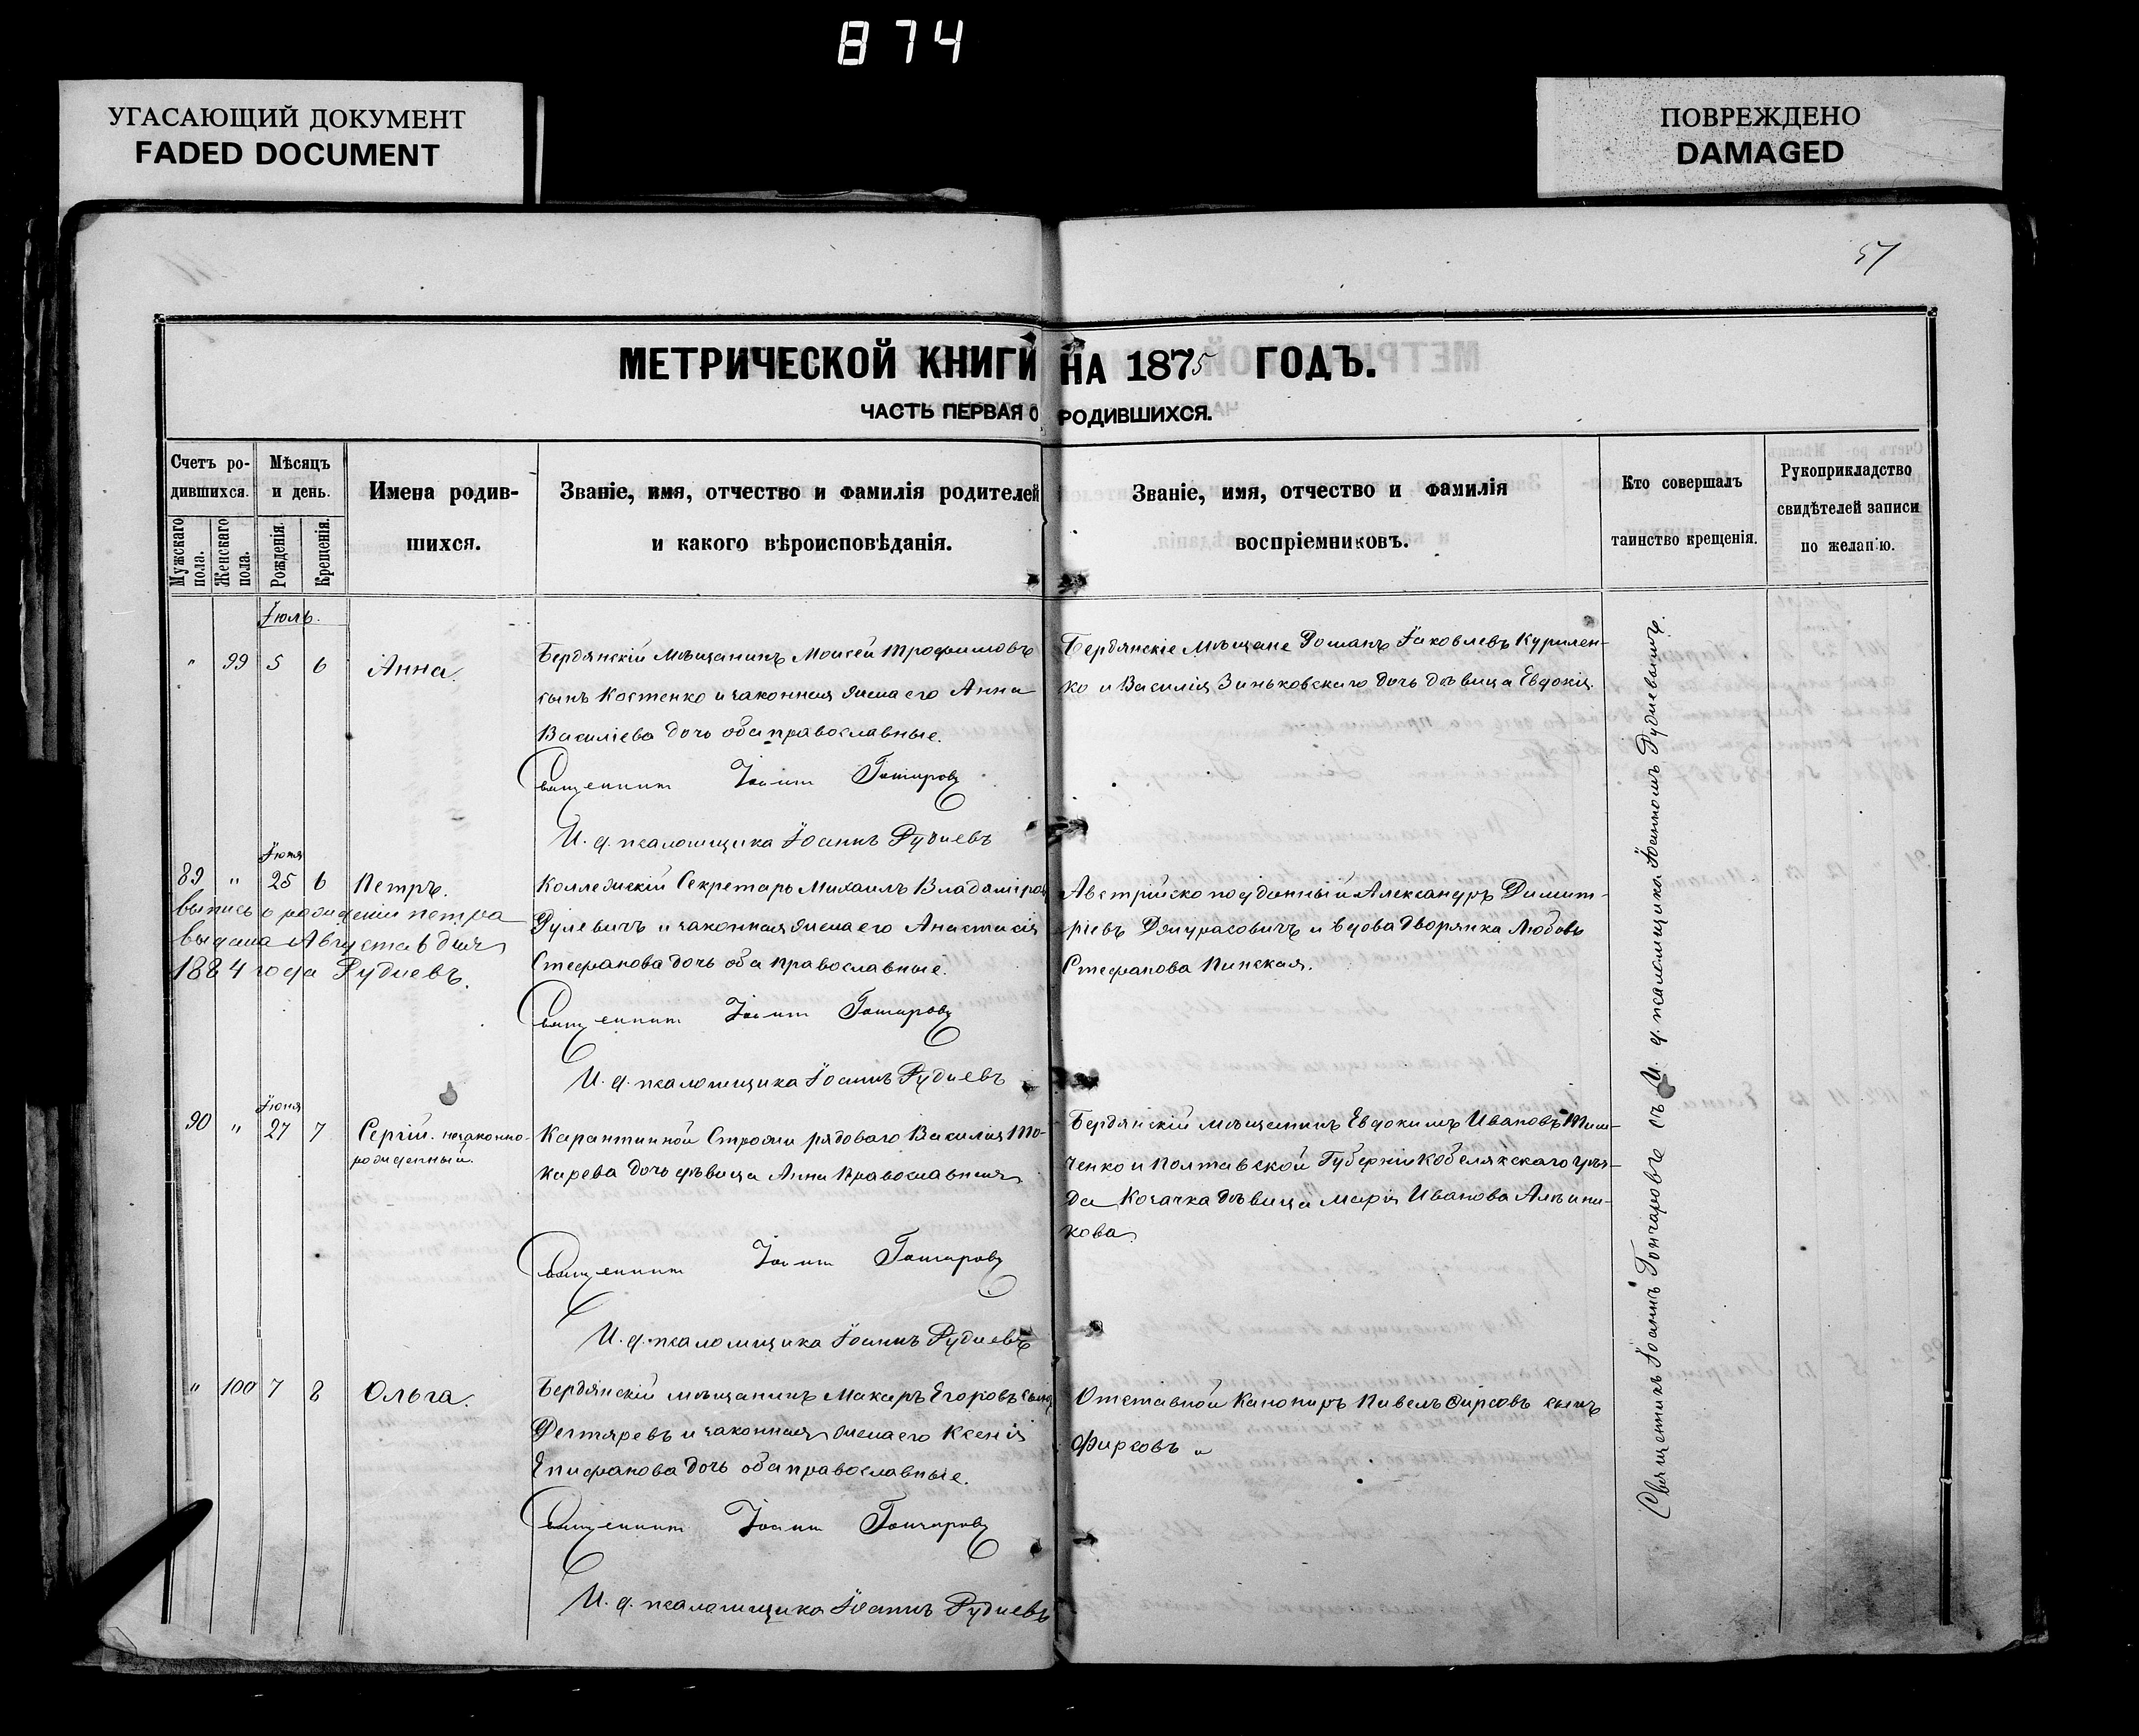 874
УГАСАЮЩИЙ ДОКУМЕНТ
FADED DOCUMENT
ПОВРЕЖДЕНО
DAMAGED
51
МЕТРИЧЕСКОЙ КНИГИ НА 1875 ГОДЪ.
ЧАСТЬ ПЕРВАЯ О РОДИВШИХСЯ.
Счетъ ро-
дившихся.
Мужскаго пола.
Женскаго пола.
Мѣсяцъ
и день.
Рожденія.
Крещенія.
Имена родив-
шихся.
Званіе, имя, отчество и фамилія родителей
и какого вѣроисповѣданія.
Званіе, имя, отчество и фамилія
воспріемниковъ.
Кто совершалъ
таинство крещенія.
Рукоприкладство
свидѣтелей записи
по желанію.
Іюль.
" 99 5 6 Анна.
Бердянскій мѣщанинъ Моисей Трофимовъ
сынъ Костенко и законная жена его Анна
Василіева дочь оба православные.
Священникъ Іоаннъ Гончаровъ
И. д. псаломщика Іоаннъ Рудневъ
Бердянскіе мѣщане Романъ Іаковлевъ Курилен-
ко и Василія Зиньковскаго дочь дѣвица Евдокія.
Іюня
89 " 25 6 Петръ.
выпись о рожденіи Петра
выдана Августа 6 дня
1884 года Рудневъ.
Коллежскій Секретарь Михаилъ Владиміровъ
Гулевичъ и законная жена его Анастасія
Стефанова дочь оба православные.
Священникъ Іоаннъ Гончаровъ
И. д. псаломщика Іоаннъ Рудневъ
Австрійско подданный Александръ Димит-
ріевъ и вдова Дворянка Любовь
Стефанова Пинская.
Іюня
90 " 27 7 Сергій. незаконно-
рожденный.
Карантинной Стражи рядового Василія То-
карева дочь дѣвица Анна Православная
Священникъ Іоаннъ Гончаровъ
И. д. псаломщика Іоаннъ Рудневъ
Бердянскій мѣщанинъ Евдокимъ Ивановъ Тим-
ченко и Полтавской Губерніи Кобелякскаго уѣз-
да Козачка дѣвица Марія Иванова Алѣйни-
кова
" 100 7 8 Ольга.
Бердянскій мѣщанинъ Макаръ Егоровъ сынъ
Дегтяревъ и законная жена его Ксенія
Епифанова дочь оба православные.
Священникъ Іоаннъ Гончаровъ
И. д. псаломщика Іоаннъ Рудневъ
Отставной Канониръ Павелъ Фирсовъ сынъ
Фирсовъ "
Священникъ Іоаннъ Гончаровъ съ И. д. псаломщика Іоанномъ Рудневымъ.